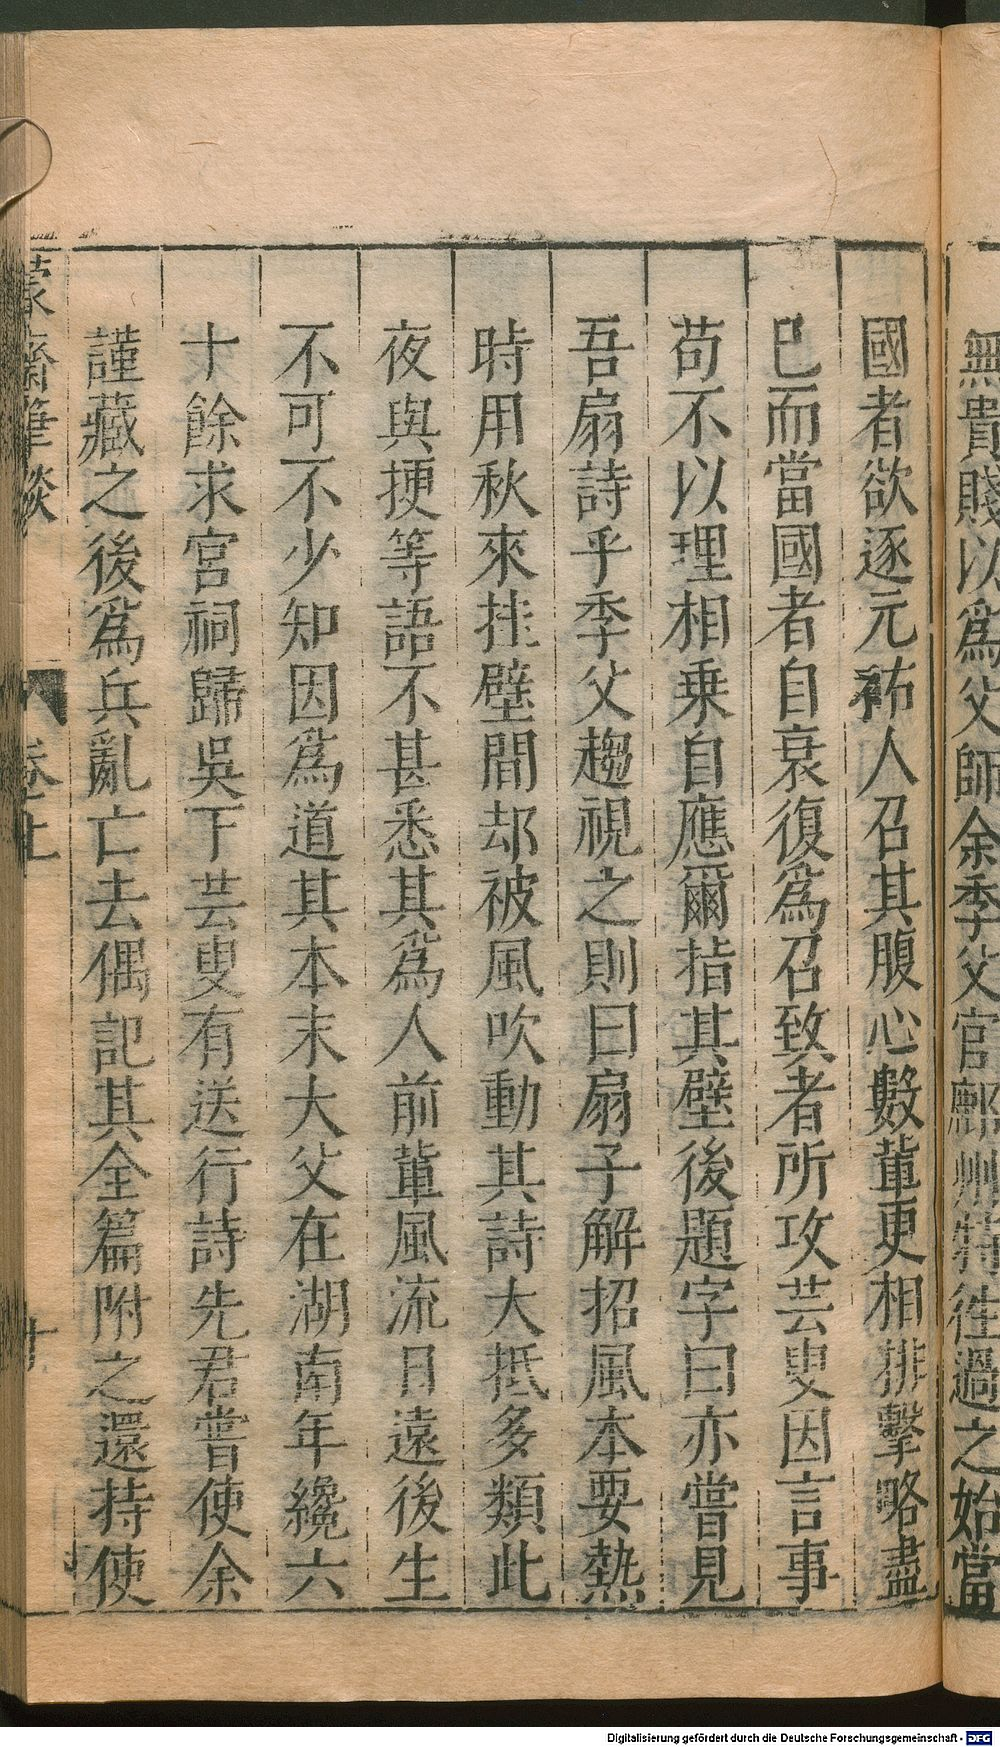 無貴賤以爲父師余季父官鄜州特往過之始當
國者欲逐元祐人召其腹心數軰更相排擊略盡
已而當國者自衰復爲召致者所攻芸叟因言事
苟不以理相乗自應爾指其壁後題字曰亦嘗見
吾扇詩乎季父趨視之則曰扇子解招風本要熱
時用秋來挂壁間却被風吹動其詩大抵多類此
夜與挭等語不甚悉其爲人前軰風流日遠後生
不可不少知因爲道其本末大父在湖南年纔六
十餘求宮祠歸吳下芸叟有送行詩先君嘗使余
謹藏之後爲兵亂亡去偶記其全篇附之還持使
蒙齋筆談 卷上 十
Digitalisierung gefördert durch die Deutsche Forschungsgemeinschaft - DFG